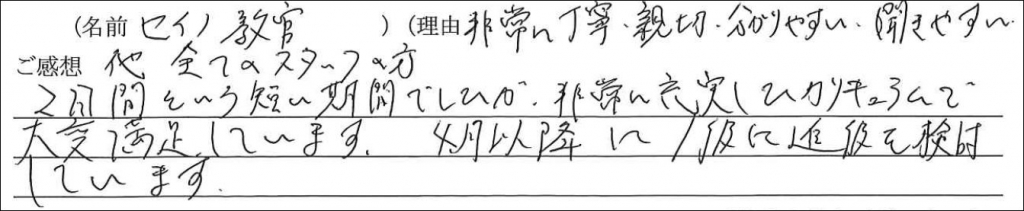 (名前 セイノ教官 ) (理由 非常に丁寧・親切・分かりやすい・聞きやすい
ご感想 他 全てのスタッフの方
2日間という短い期間でしたが、非常に充実したカリキュラムで
大変満足しています。 4月以降に1級に進級を検討
しています。